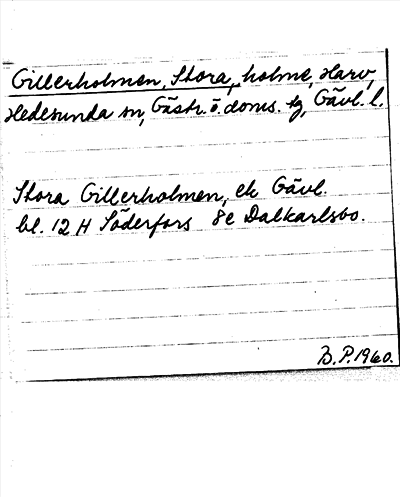 Gillerholmen, Stora, holme, Harv,
Hedesunda sn, Gästr. ö. doms. tg, Gävl. l.
Stora Gillerholmen, ek Gävl.
bl. 12 H Söderfors 8e Dalkarlsbo.
B.P. 1960.